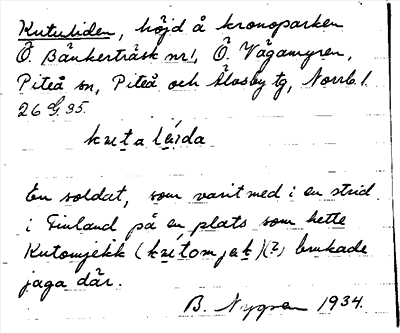 Kutuliden, höjd å kronoparken
Ö. Bänkerträsk nr 1, Ö. Vågamyren,
Piteå sn, Piteå och Älvsby tg, Norrb l.
26 G. 35.
kuta lida
En soldat, som varit med i en strid
i Finland på en plats som hette
Kutomjekk (kutomjek)(?) brukade
jaga där.
B. Nygren 1934.